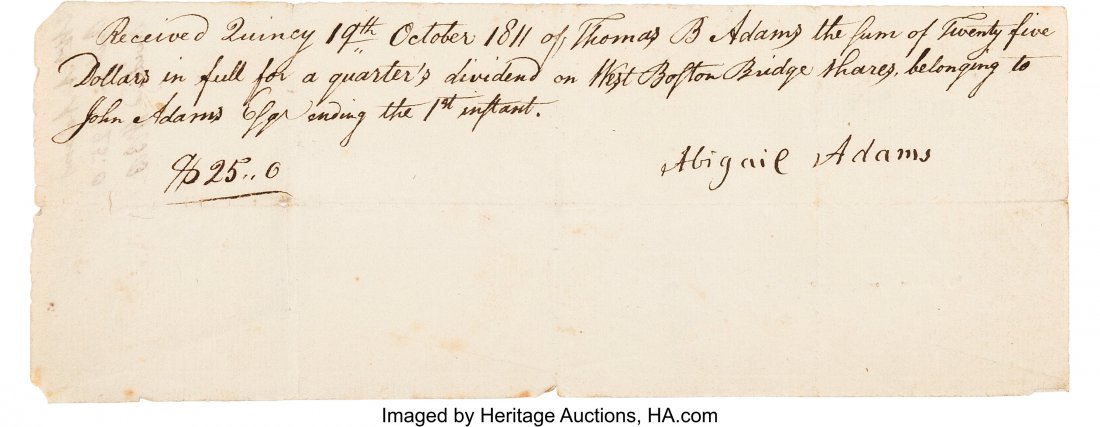 Received Quincy 19th October 1811 of Thomas B Adams the sum of Twenty five
Dollars in full for a quarter's dividend on West Boston Bridge shares, belonging to
John Adams Esqr ending the 1st instant.
$25.. 0
Abigail Adams
Imaged by Heritage Auctions, HA.com